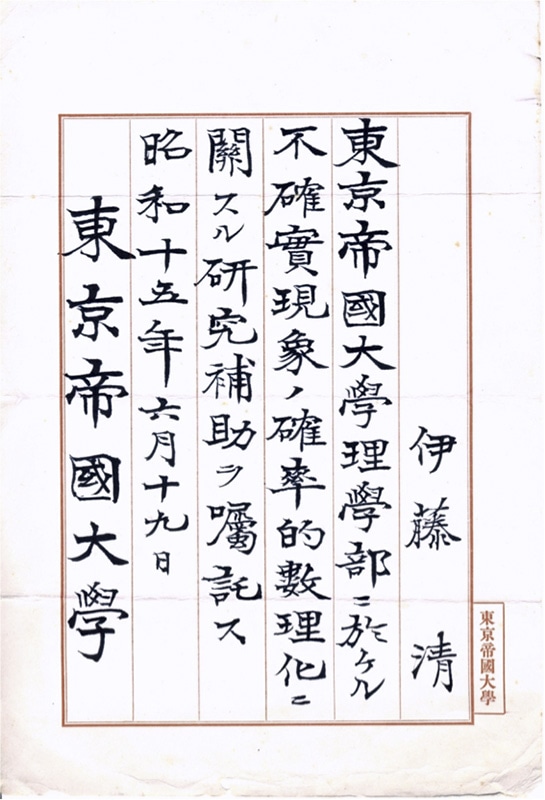 伊藤 清
東京帝國大學理學部ニ於ケル
不確實現象ノ確率的數理化ニ
關スル研究補助ヲ囑託ス
昭和十五年六月十九日
東京帝國大學
東京帝國大學